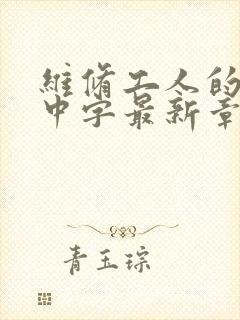 維脩工人的
中字最新章
青玉琮